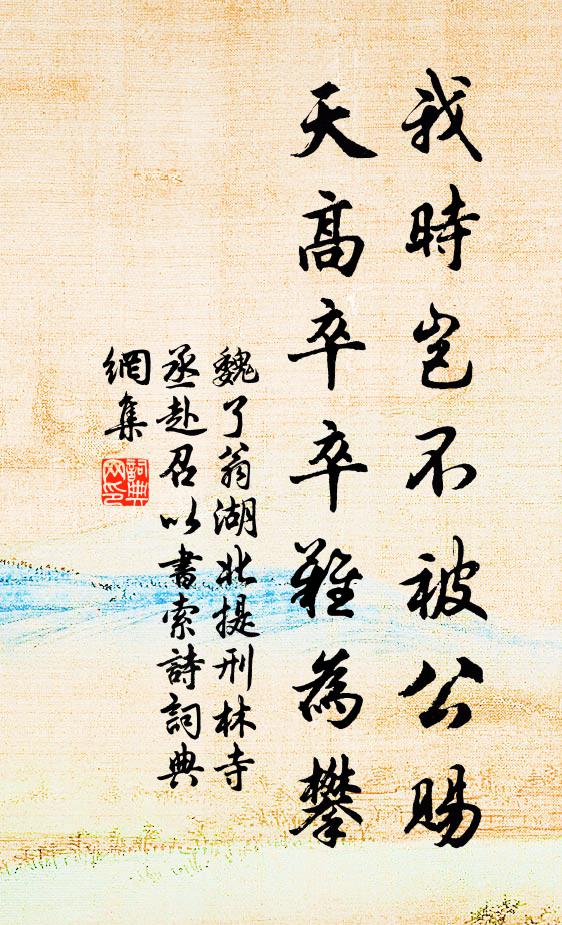 我時豈不被公賜
天高卒卒難為攀
魏了翁湖北提刑林寺
丞赴召以書索詩詞典
網集
詞典
网印